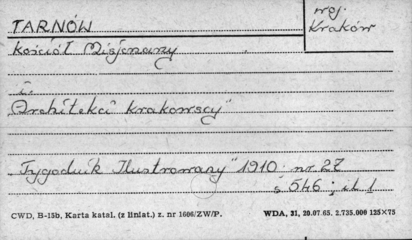 TARNÓW
woj. Kraków
Kościół Misjonarzy
i.
Architekci krakowscy"
"Tygodnik Ilustrowany" 1910 nr 27
s 546; il. 1
CWD, B-15b, Karta katal. (z liniat.) z. nr 1606/ZW/P.
WDA, 21, 20.07.65. 2.735.000 125×75